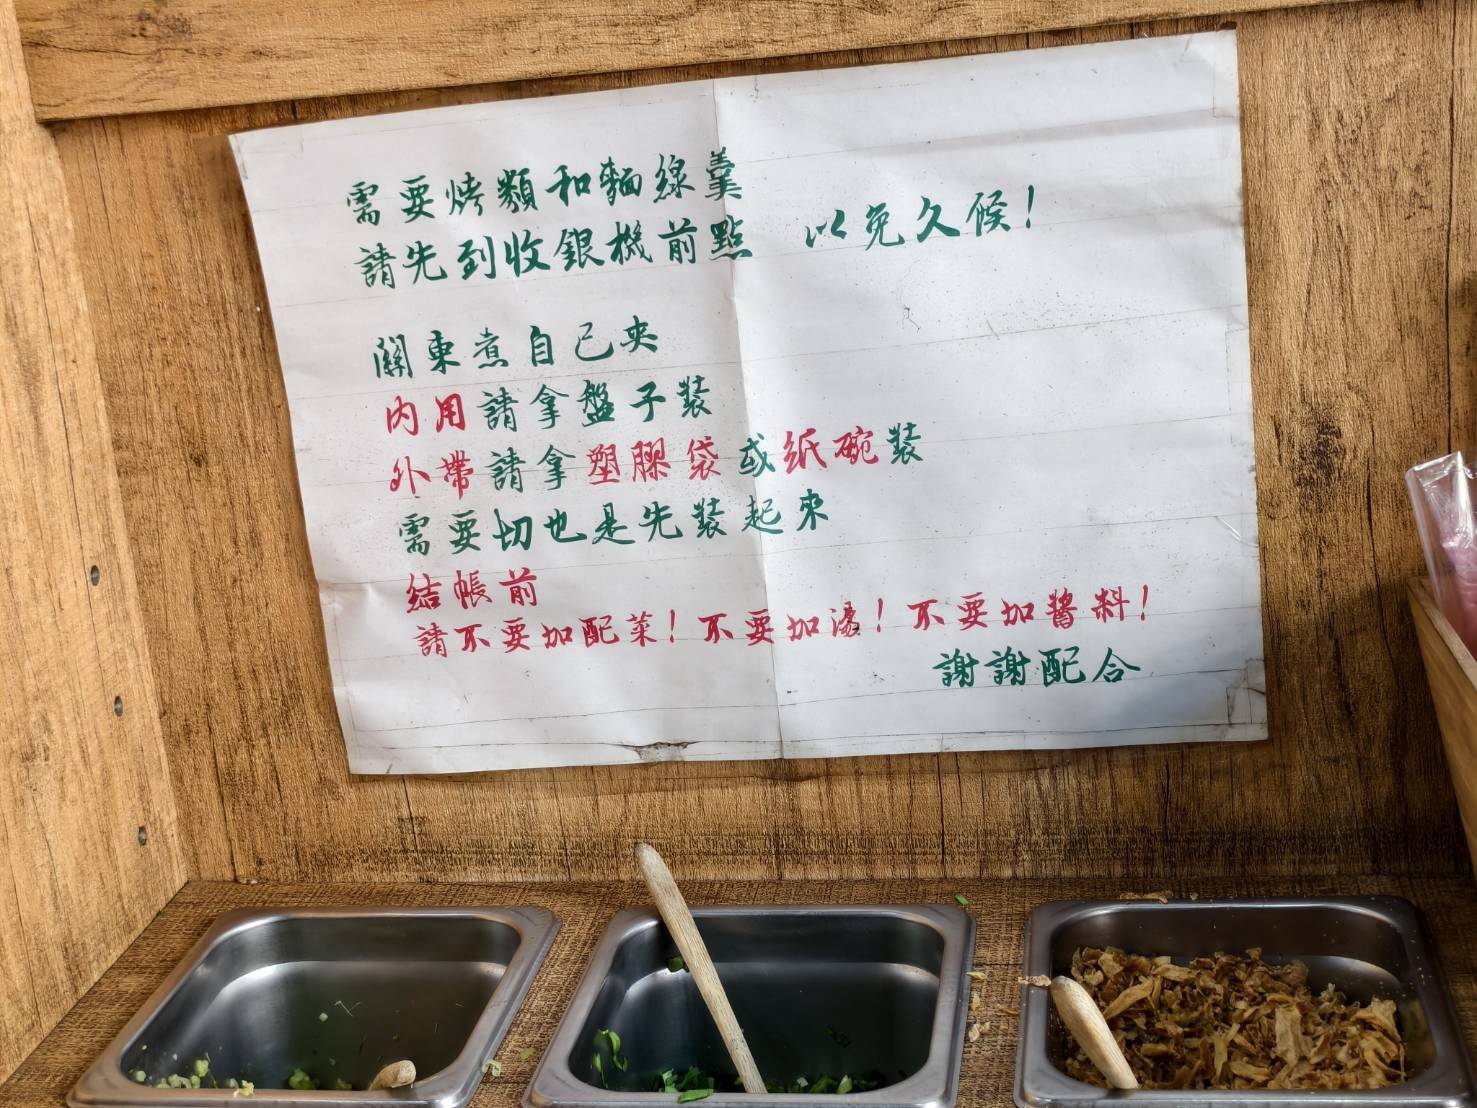 需要烤類和麵線羹
請先到收銀機前點 以免久候!
關東煮自己夾
內用請拿盤子裝
外帶請拿塑膠袋或紙碗裝
需要切也是先裝起來
結帳前
請不要加配菜!不要加湯!不要加醬料!
謝謝配合